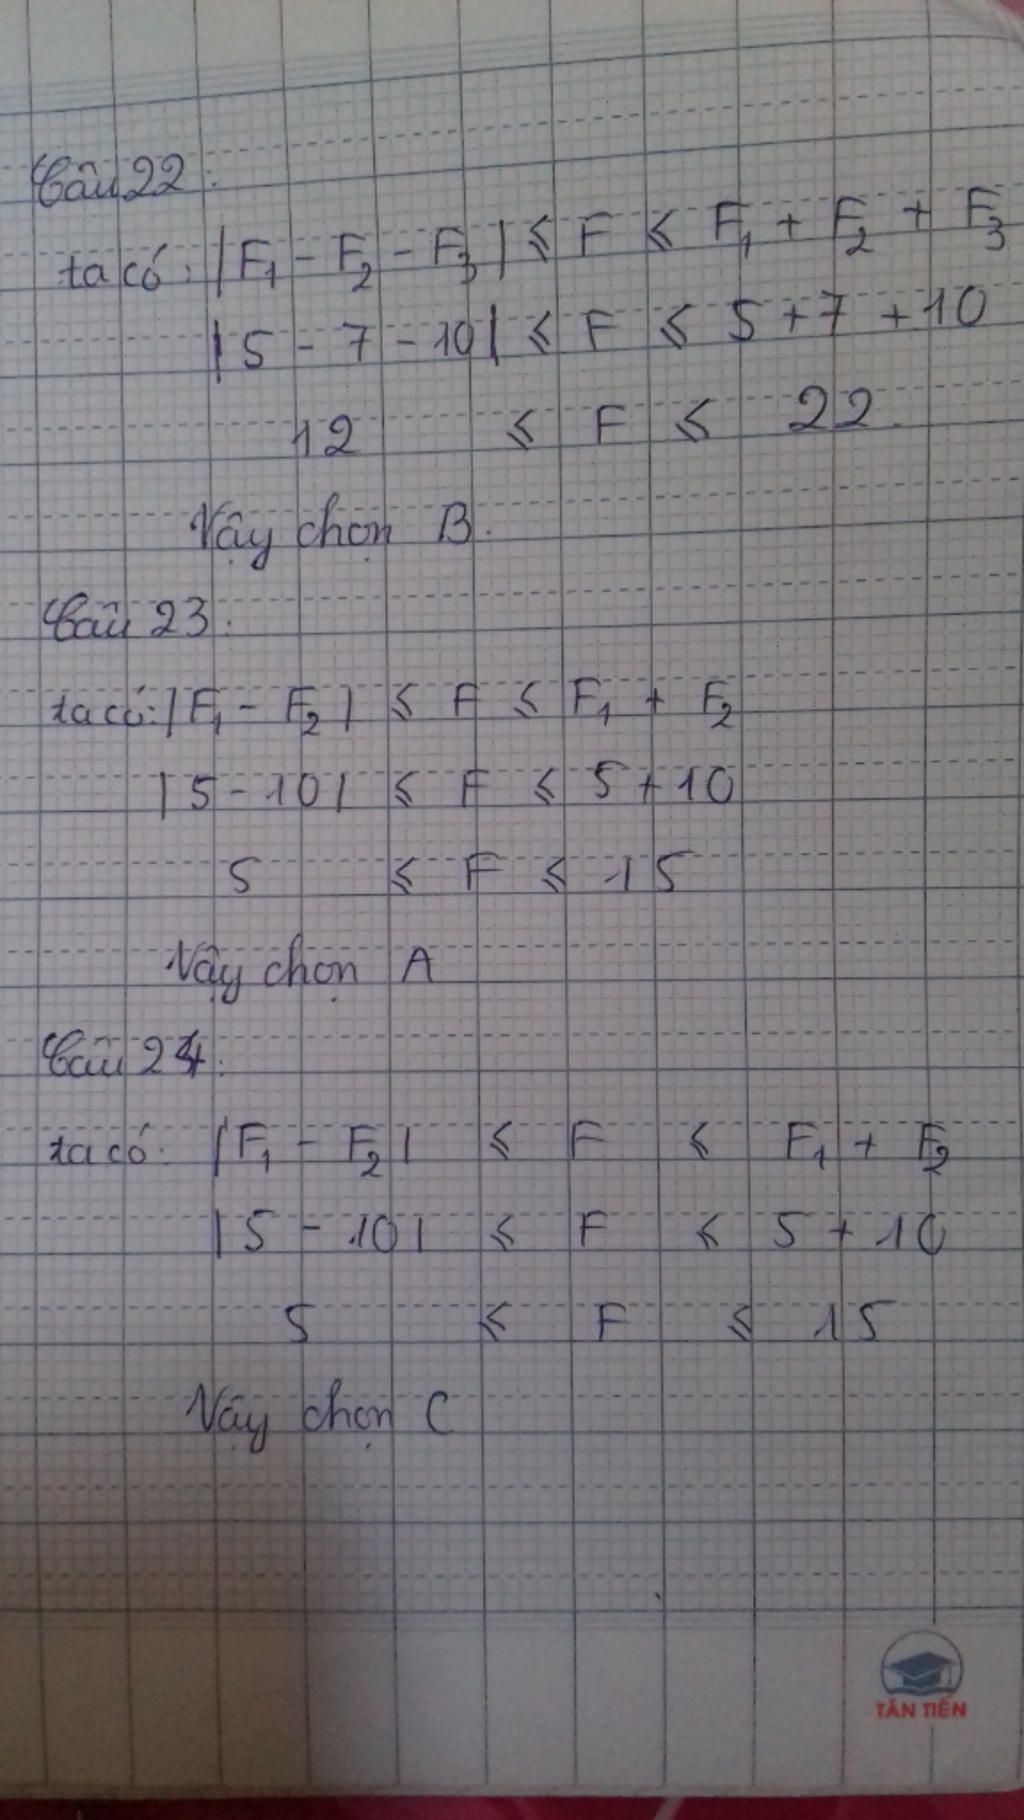 Câu 22:
ta có: |F₁ - F₂ - F₃| ⩽ F ⩽ F₁ + F₂ + F₃
|5 - 7 - 10| ⩽ F ⩽ 5 + 7 + 10
12 ⩽ F ⩽ 22.
Vậy chọn B.
Câu 23:
ta có: |F₁ - F₂| ⩽ F ⩽ F₁ + F₂
|5 - 10| ⩽ F ⩽ 5 + 10
5 ⩽ F ⩽ 15
Vậy chọn A
Câu 24:
ta có: |F₁ - F₂| ⩽ F ⩽ F₁ + F₂
|5 - 10| ⩽ F ⩽ 5 + 10
5 ⩽ F ⩽ 15
Vậy chọn C
TÂN TIẾN